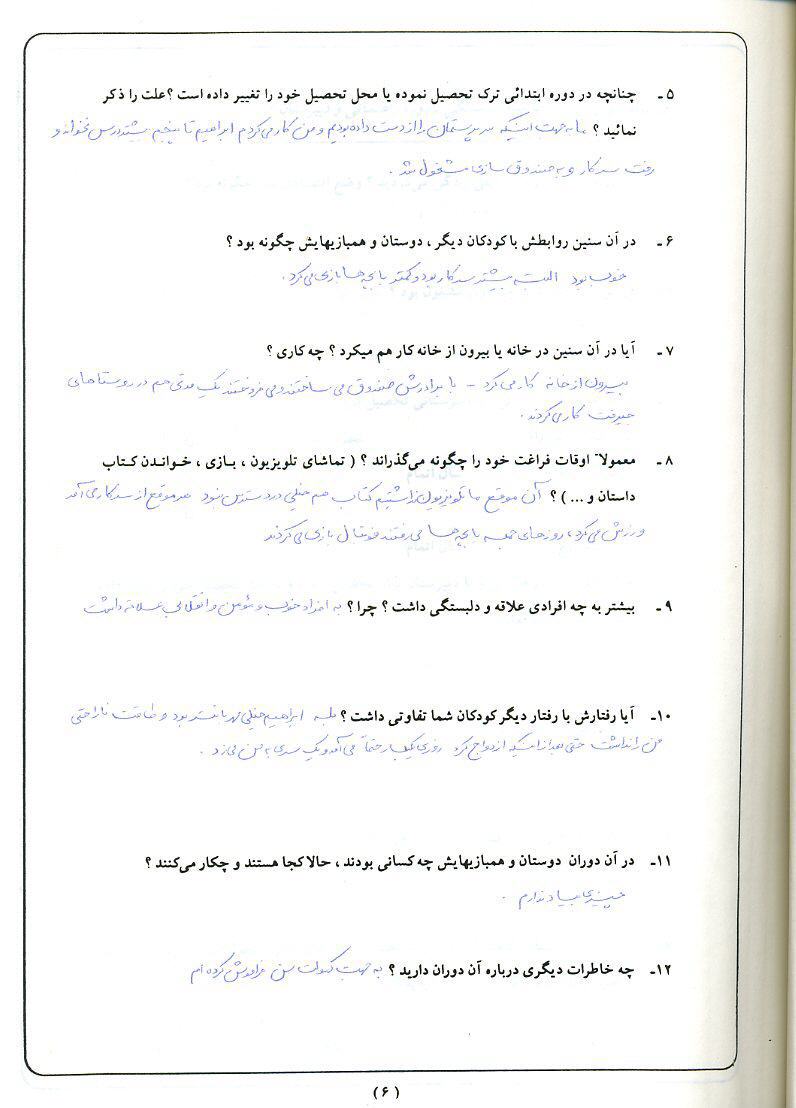 ۵ـ چنانچه در دوره ابتدائی ترک تحصیل نموده یا محل تحصیل خود را تغییر داده است ؟ علت را ذکر
نمائید ؟ ما به جهت اینکه سرپرستمان را از دست داده بودیم و من کار می‌کردم ابراهیم تا پنجم بیشتر درس نخواند و
رفت سر کار و به صندوق سازی مشغول شد .
۶ـ در آن سنین روابطش با کودکان دیگر ، دوستان و همبازیهایش چگونه بود ؟
خوب بود البته بیشتر سر کار بود و کمتر با بچه‌ها بازی می‌کرد .
۷ـ آیا در آن سنین در خانه یا بیرون از خانه کار هم میکرد ؟ چه کاری ؟
بیرون از خانه کار می‌کرد - با برادرش صندوق می‌ساختند و می‌فروختند یک مدتی هم در روستاهای
جیرفت کار می‌کردند .
۸ـ معمولاً اوقات فراغت خود را چگونه می‌گذراند ؟ ( تماشای تلویزیون ، بازی ، خواندن کتاب
داستان و ... ) ؟ آن موقع ما تلویزیون نداشتیم کتاب هم خیلی در دسترس نبود هر موقع از سر کار می‌آمد
ورزش می‌کرد ، روزهای جمعه با بچه‌ها می‌رفتند فوتبال بازی می‌کردند
۹ـ بیشتر به چه افرادی علاقه و دلبستگی داشت ؟ چرا ؟ به افراد خوب و مؤمن و انقلابی علاقه داشت
۱۰ـ آیا رفتارش با رفتار دیگر کودکان شما تفاوتی داشت ؟ بله ابراهیم خیلی مهربانتر بود و طاقت ناراحتی
من را نداشت حتی بعد از اینکه ازدواج کرد روزی یکبار حتماً می‌آمد و یک سری به من می‌زد .
۱۱ـ در آن دوران دوستان و همبازیهایش چه کسانی بودند ، حالا کجا هستند و چکار می‌کنند ؟
چیزی بیاد ندارم .
۱۲ـ چه خاطرات دیگری درباره آن دوران دارید ؟ به جهت کهولت سن فراموش کرده ام
(۶)